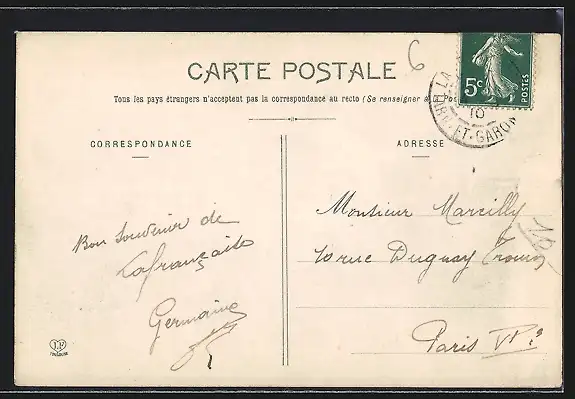 6
CARTE POSTALE
Tous les pays étrangers n'acceptent pas la correspondance au recto (Se renseigner à la Pos
5c
POSTES
LA
10
TARN-ET-GARON
CORRESPONDANCE
ADRESSE
Bon Souvenir de
Lafrançaise
Germaine
Monsieur Marcilly
10 rue Duguay Trouin
Paris VI e
TOULOUSE